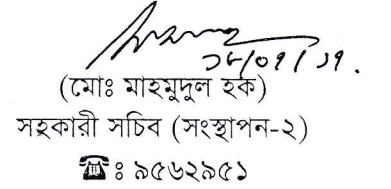 ১৮/০৭/১৭.
(মোঃ মাহমুদুল হক)
সহকারী সচিব (সংস্থাপন-২)
☎ঃ ৯৫৬২৯৫১